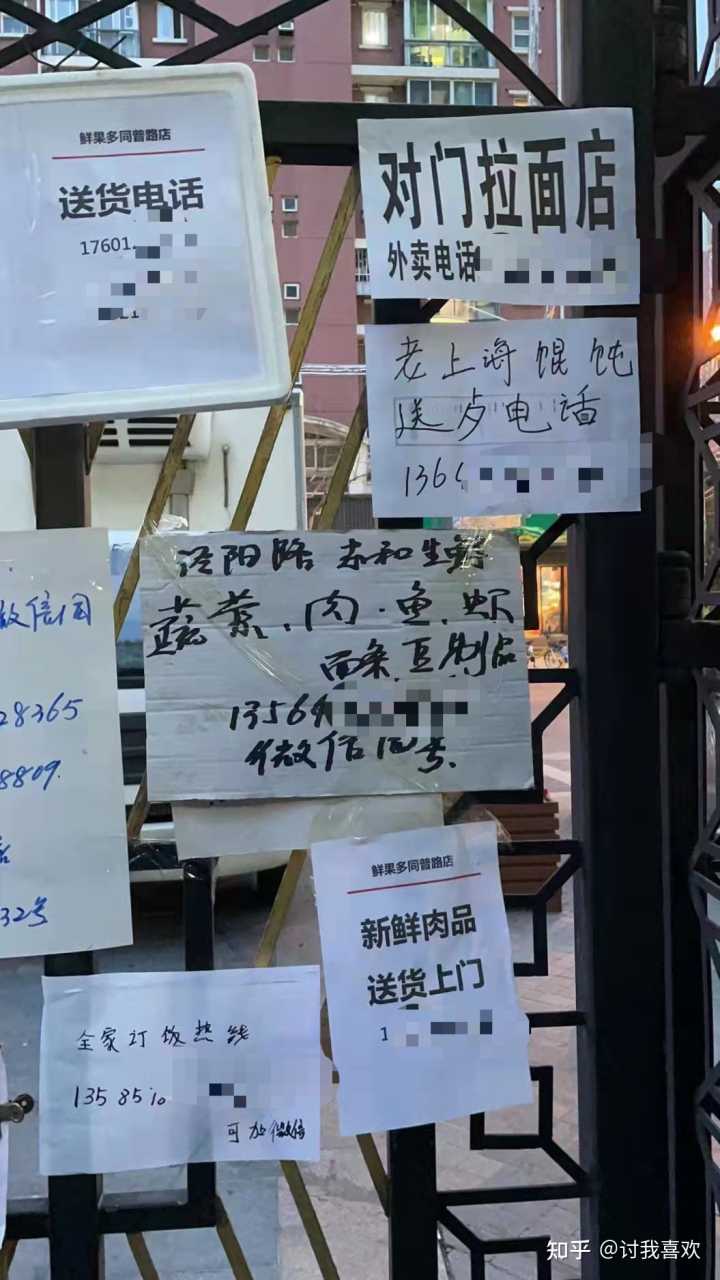 鲜果多同普路店
送货电话
17601
对门拉面店
外卖电话
老上海馄饨
送户电话
136
泾阳路
生鲜
蔬菜、肉·鱼.虾
面条.豆制品
13564
微信同号.
微信同
28365
8809.
32号
鲜果多同普路店
新鲜肉品
送货上门
1
全家订饭热线
1358510
可加微信
知乎 @讨我喜欢